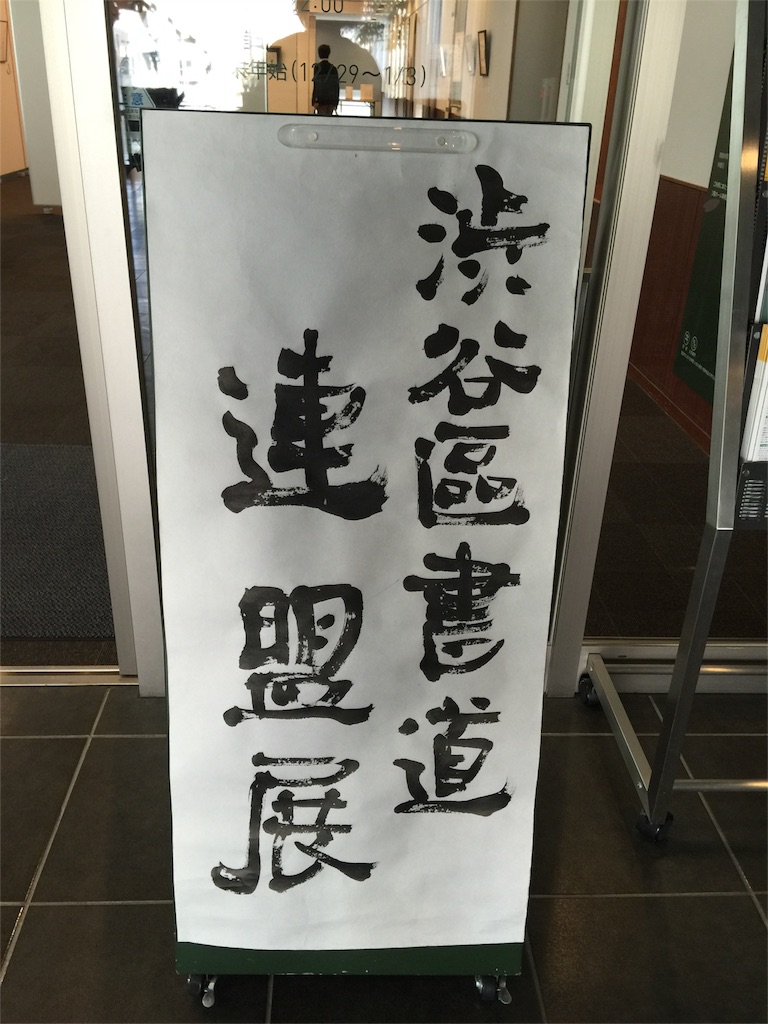 :00
年始(12/29～1/3)
渋谷區書道
連盟展